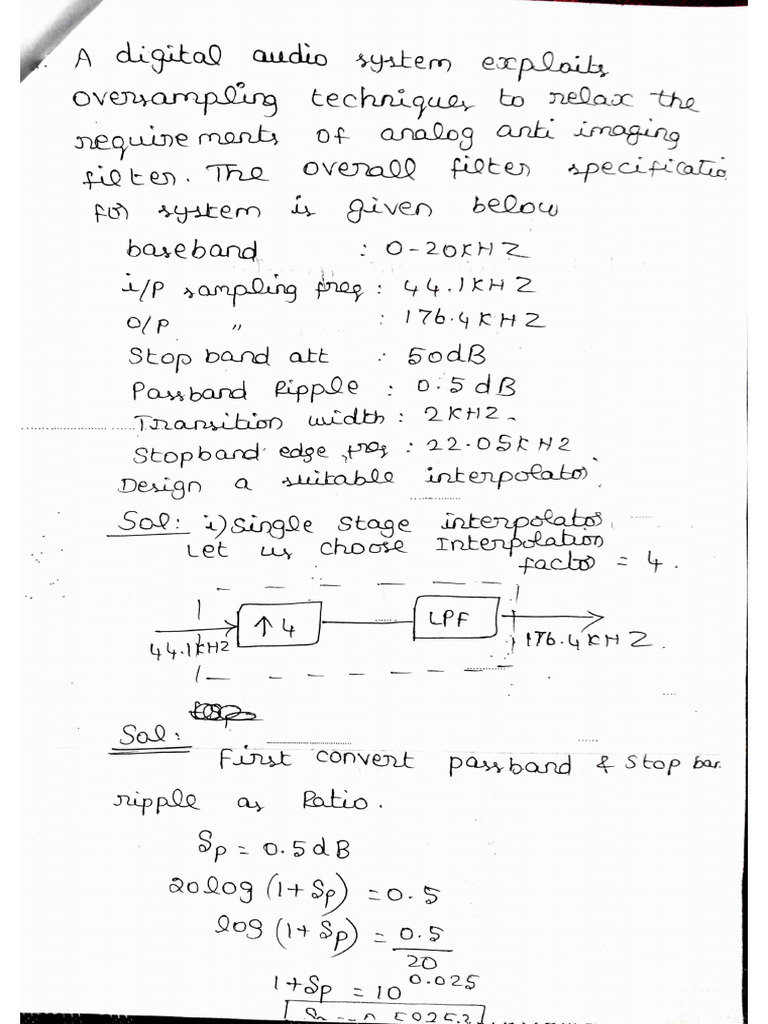 A digital audio system exploits
oversampling techniques to relax the
requirements of analog anti imaging
filter. The overall filter specificatio
for system is given below
baseband : 0-20KHZ
i/p sampling freq : 44.1KHZ
O/P " : 176.4KHZ
Stop band att : 50dB
Passband Ripple : 0.5dB
Transition width : 2KHZ.
Stopband edge freq : 22.05KHZ
Design a suitable interpolator
Sol: i) Single stage interpolator
Let us choose Interpolation
factor = 4.
↑ 4
LPF
44.1KHZ
176.4KHZ.
Sol:
First convert passband & stop ban
ripple as Ratio.
Sp = 0.5dB
20log (1+Sp) = 0.5
log (1+Sp) = 0.5/20
1+Sp = 10^0.025